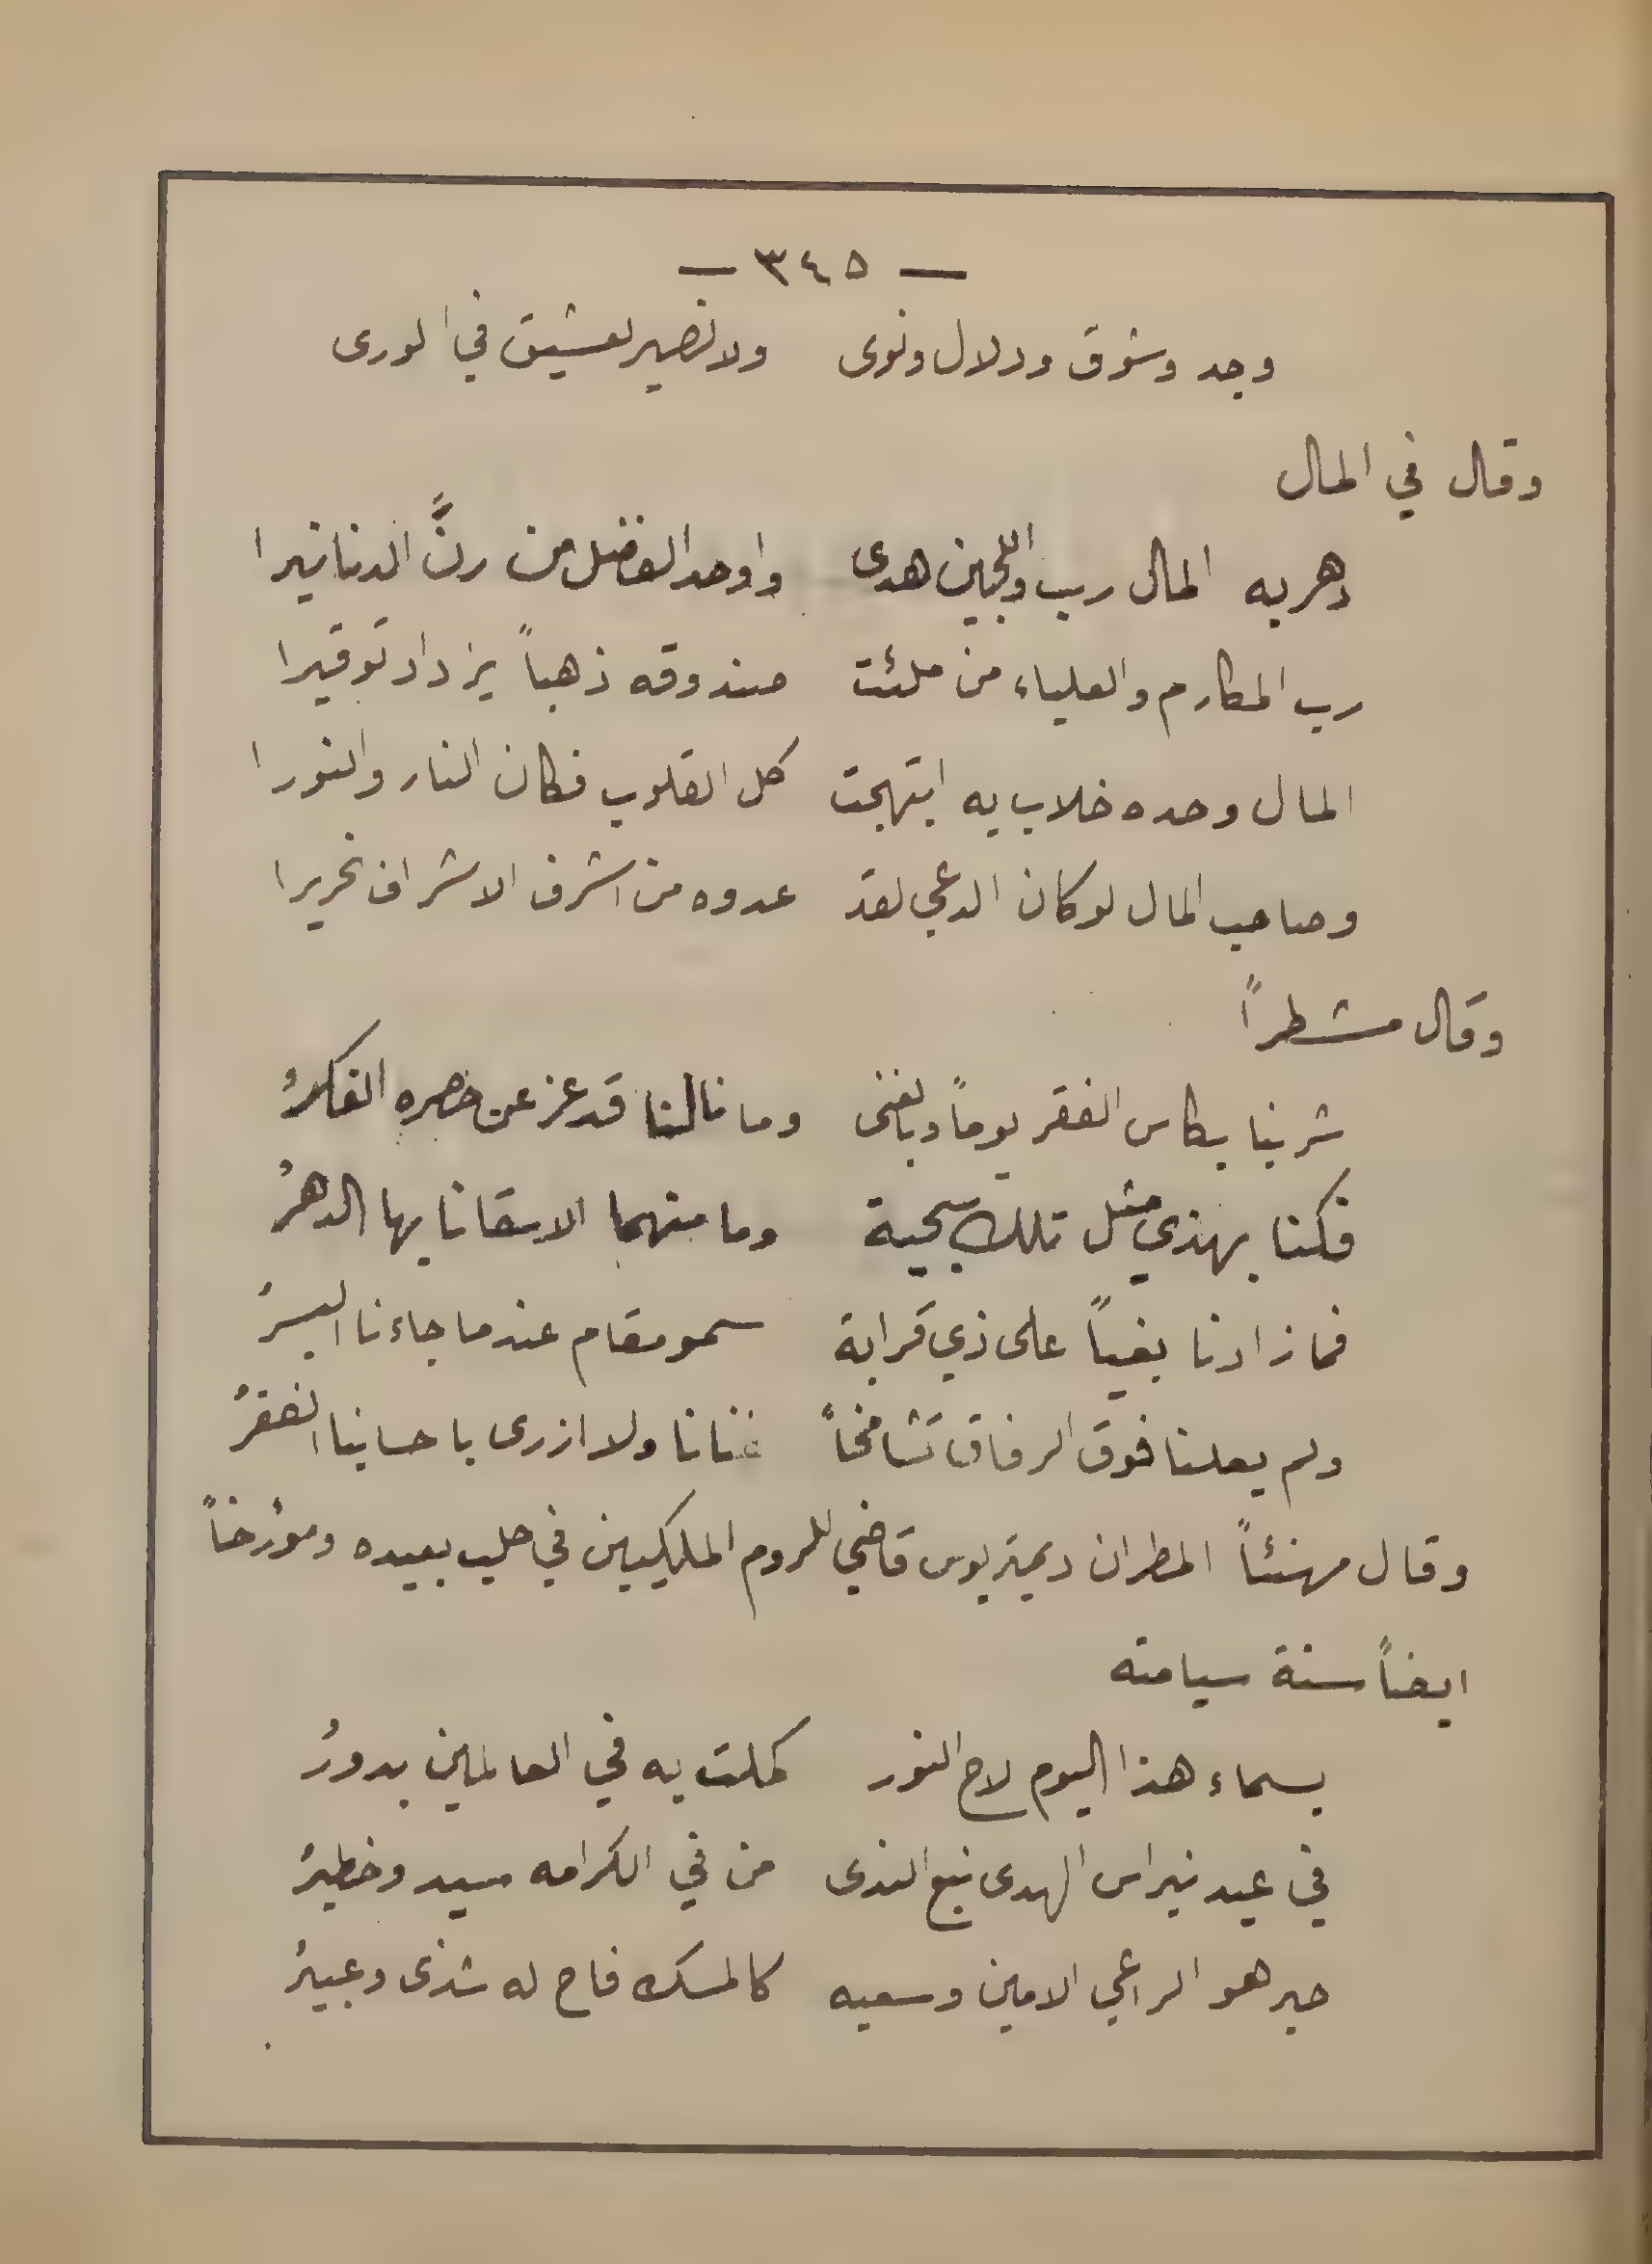 — ٣٤٥ —
وجد وشوق ودلال ونوى ولا نصير لعشيق في الورى
وقال في المال
دهر به المال رب واللجين هدى واوحد الفضل من رنَّ الدنانيرا
رب المكارم والعلياء من ملئت صندوقه ذهباً يزداد توقيرا
المال وحده خلاب به ابتهجت كل القلوب فكان النار والنورا
وصاحب المال لو كان الدعي لقد عدوه من اشرف الاشراف نحريرا
وقال مشطراً
شربنا بكاس الفقر يوماً وبالغنى وما نالنا قد عز عن حصره الفكرُ
فكنا بهذي مثل تلك سجية وما منهما الا سقانا بها الدهرُ
فما زادنا بغياً على ذي قرابة سمو مقام عندما جاءنا اليسرُ
ولم يعلنا فوق الرفاق تشامخاً غنانا ولا ازرى باحسابنا الفقرُ
وقال مهنئاً المطران ديمتريوس قاضي للروم الملكيين في حلب بعيده ومؤرخاً
ايضاً سنة سيامته
بسماء هذا اليوم لاح النور كملت به في العالمين بدورُ
في عيد نبراس الهدى نبع الندى من في الكرامه سيد وخطيرُ
حبر هو الراعي الامين وسعيه كالمسك فاح له شذى وعبيرُ